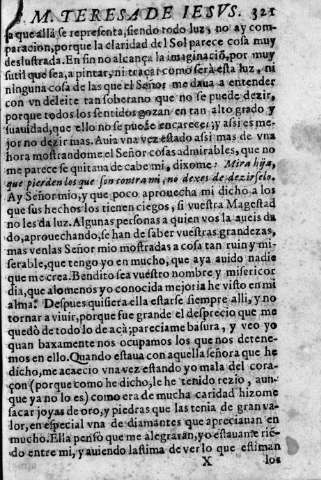 M. TERESA DE IESVS. 321
la que allà se representa, siendo todo luz, no ay com-
paracion, porque la claridad del Sol parece cosa muy
deslustrada. En fin no alcança la imaginaciõ, por muy
sutil que sea, a pintar, ni traçar como serà esta luz, ni
ninguna cosa de las que el Señor me daua a entender
con vn deleite tan soberano que no se puede dezir,
porque todos los sentidos gozan en tan alto grado y
suauidad, que ello no se puede encarecer; y assi es me-
jor no dezir mas. Auia vna vez estado assi mas de vna
hora mostrandome el Señor cosas admirables, que no
me parece se quitaua de cabe mi, dixome: Mira hija,
que pierden los que son contra mi, no dexes de dezirselo.
Ay Señor mio, y que poco aprouecha mi dicho a los
que sus hechos los tienen ciegos, si vuestra Magestad
no les da luz. Algunas personas a quien vos la aueis da
do, aprouechando, se han de saber vuestras grandezas,
mas venlas Señor mio mostradas a cosa tan ruin y mi-
serable, que tengo yo en mucho, que aya auido nadie
que me crea. Bendito sea vuestro nombre y misericor
dia, que alomenos yo conocida mejoria he visto en mi
alma. Despues quisiera ella estarse siempre alli, y no
tornar a viuir, porque fue grande el desprecio que me
quedò de todo lo de acà; pareciame basura, y veo yo
quan baxamente nos ocupamos los que nos detene-
mos en ello. Quando estaua con aquella señora que he
dicho, me acaecio vna vez estando yo mala del cora-
çon (porque como he dicho, le he tenido rezio, aun-
que ya no lo es) como era de mucha caridad hizome
sacar joyas de oro, y piedras que las tenia de gran va-
lor, en especial vna de diamantes que apreciauan en
mucho. Ella pensò que me alegraran, yo estauante riẽ-
do entre mi, y auiendo lastima de ver lo que estiman
X los